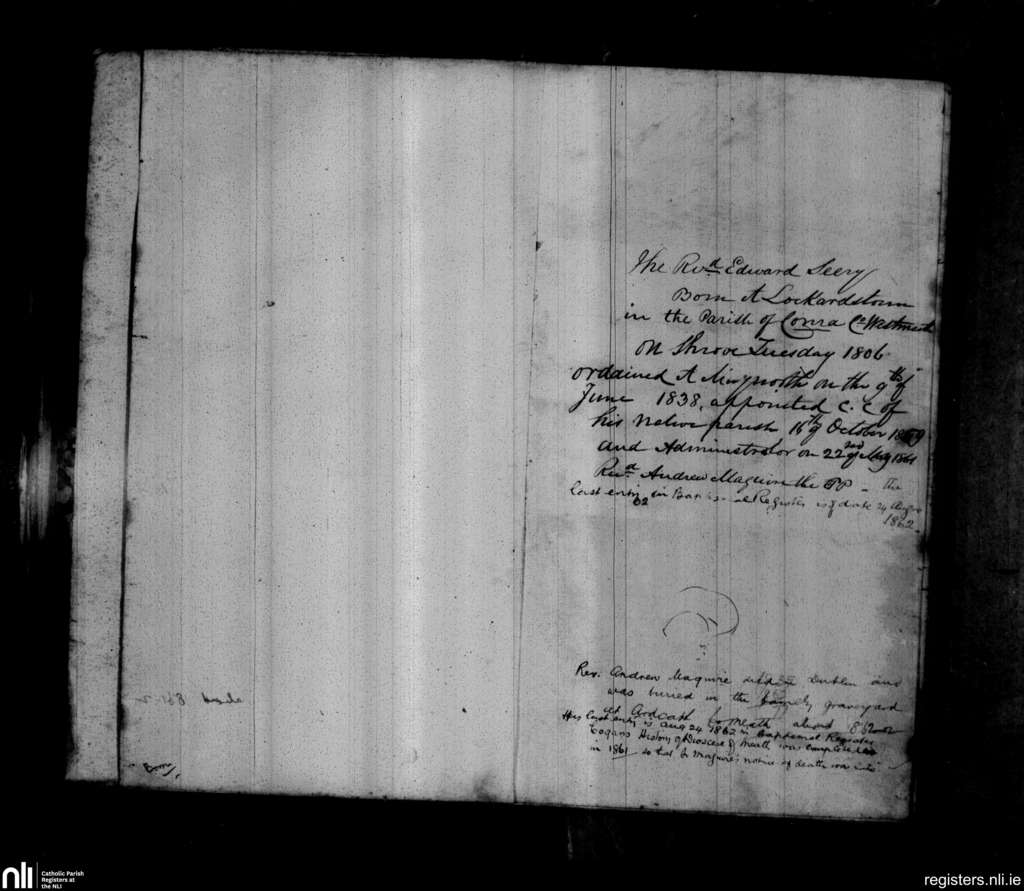 The Revd Edward Seery
Born At Lockardstown
in the Parish of Conra Co Westmeath
on Shrove Tuesday 1806
ordained At Maynooth on the 9th of
June 1838, appointed C. C of
his native parish 16th of October
and Administrator on 22nd of May 1861
Revd Andrew Maguire the PP – the
last entry in Register is of date 24 August
62
1862
Rev. Andrew Maguire died in Dublin and
was buried in the family graveyard
at Ardcath Co Meath about
His last entry is Aug 24 1862 in Baptismal Register
Cogan's History of Diocese of Meath was completed
in 1861 so that Fr Maguire's notice of death was
nli
Catholic Parish
Registers at
the NLI
registers.nli.ie